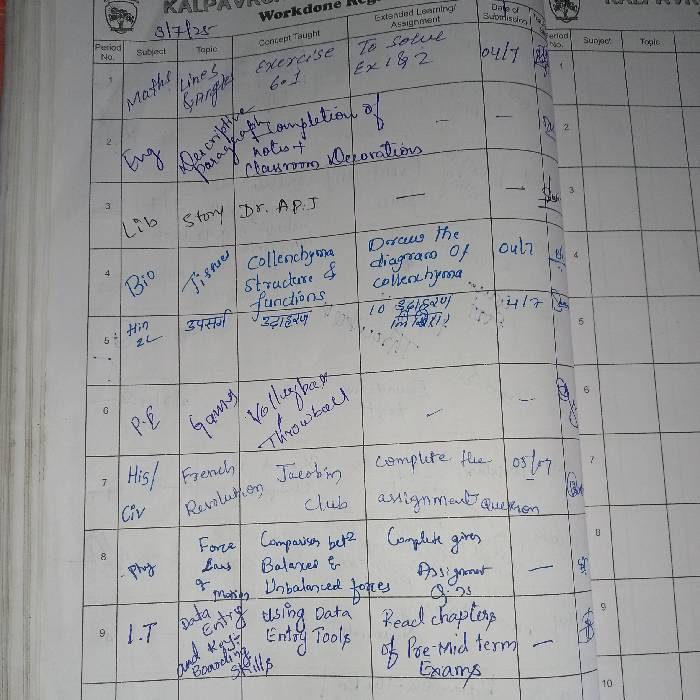 KALPAVR
Workdone Reg
3/7/25
Period No. Subject Topic Concept Taught Extended Learning/ Assignment Date of Submission
1 Maths Lines & Angles Exercise 6.1 To solve Ex 1 & 2 04/7
2 Eng Descriptive paragraph Completion of notes + classroom Decorations — —
3 Lib Story Dr. A.P.J — —
4 Bio Tissues Collenchyma structure & functions Draw the diagram of collenchyma 04/7
5 Hin 2L उपसर्ग उदाहरण 10 उदाहरण 4/7
6 P.E Games Volleyball + Throwball — —
7 His/ Civ French Revolution Jacobin Club Complete the assignment question 05/07
8 Phy Force Laws of Motion Comparison bet² Balanced & Unbalanced forces Complete given Assignment Q.ns —
9 I.T Data Entry and Key-Boarding Skills Using Data Entry Tools Read chapters of Pre-Mid term Exams —
Period No. Subject Topic
1
2
3
4
5
6
7
8
9
10